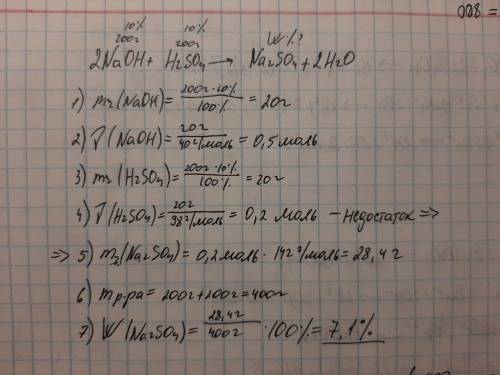 = 008
10% 10%
200г 200г W%?
2NaOH + H2SO4 → Na2SO4 + 2H2O
1) m2(NaOH) = 200г·10% / 100% = 20г
2) ν(NaOH) = 20г / 40г/моль = 0,5моль
3) m2(H2SO4) = 200г·10% / 100% = 20г
4) ν(H2SO4) = 20г / 98г/моль = 0,2 моль – недостаток =>
=> 5) m2(Na2SO4) = 0,2моль · 142г/моль = 28,4г
6) mр-ра = 200г + 200г = 400г
7) W(Na2SO4) = 28,4г / 400г · 100% = 7,1%